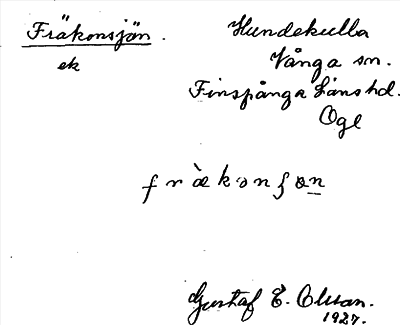 Fräkonsjön.
ek
Hundekulla
Vånga sn.
Finspånga Läns hd.
Ögl
fræ̀konʃøn
Gustaf E. Olsson.
1927.